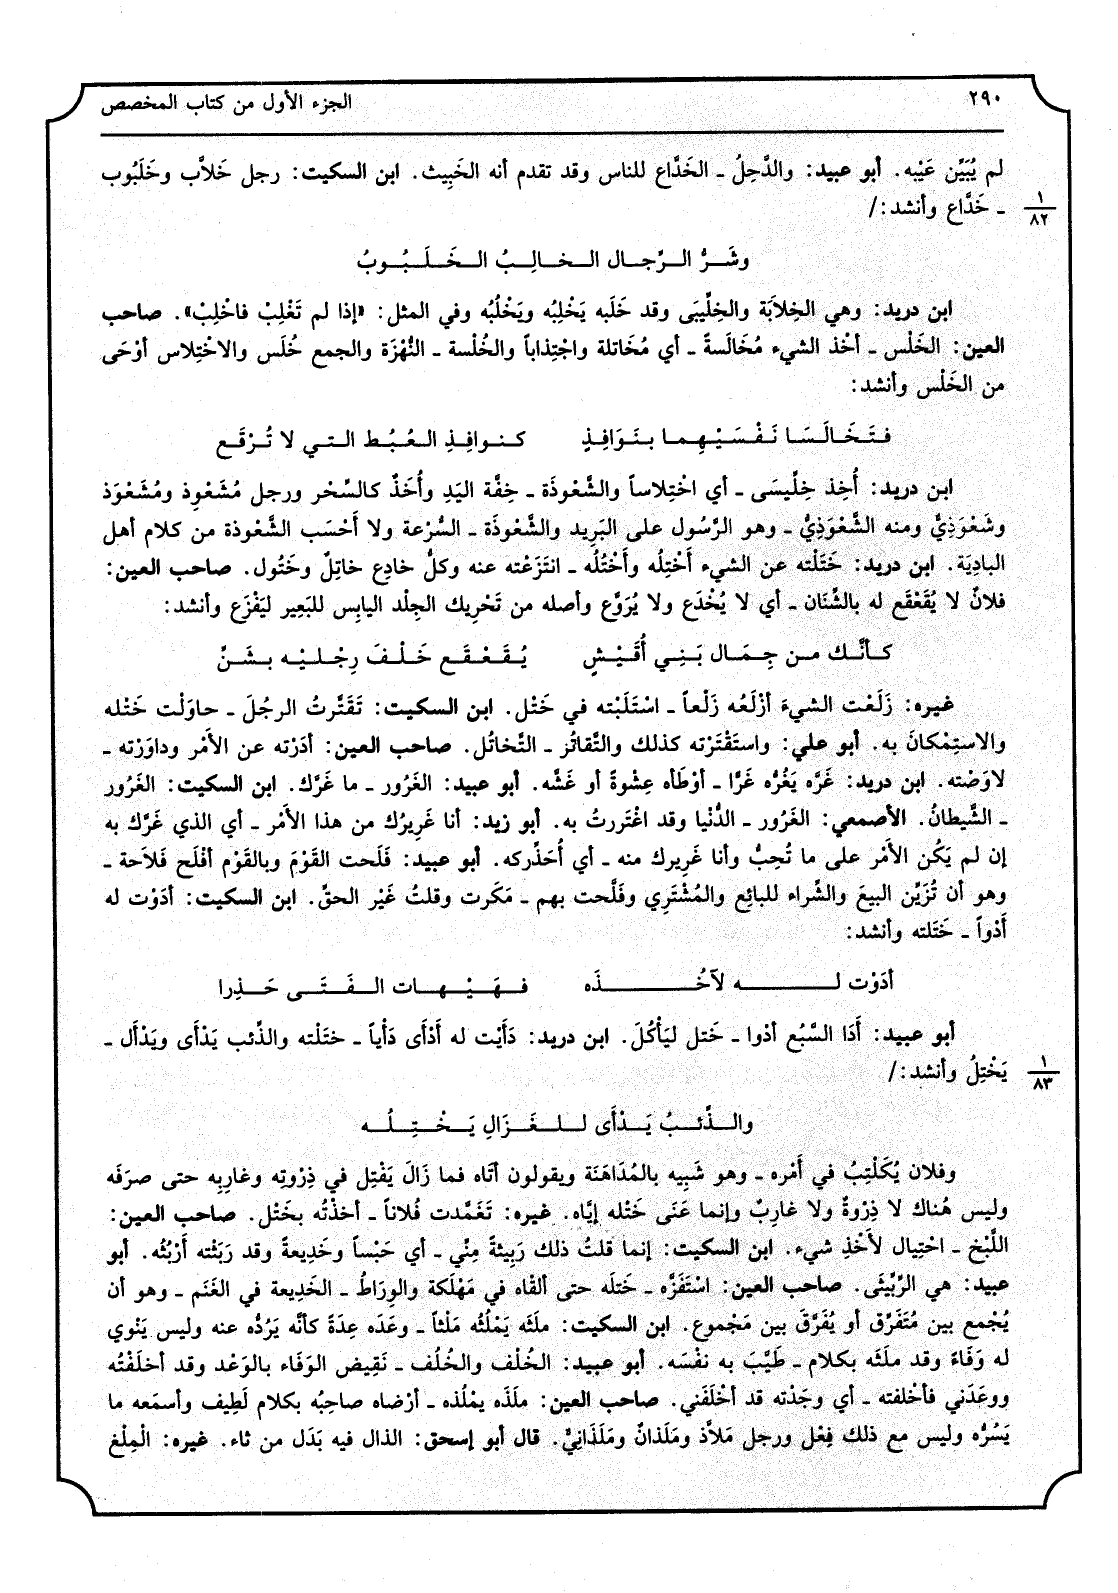 ٢٩٠ الجزء الأول من كتاب المخصص
لم يُبَيِّن عَيْبه. أبو عبيد: والدَّحِلُ ـ الخَدَّاع للناس وقد تقدم أنه الخَبِيث. ابن السكيت: رجل خَلاَّب وخَلَبُوب
١/٨٢
ـ خَدَّاع وأنشد:/
وشَـرُّ الـرِّجـال الـخـالِـبُ الـخَـلَـبُـوبُ
ابن دريد: وهي الخِلابَة والخِلِّيبَى وقد خَلَبه يَخْلِبُه ويَخْلُبُه وفي المثل: «إذا لم تَغْلِبْ فاخْلِبْ». صاحب
العين: الخَلْس ـ أخْذ الشيء مُخَالَسةً ـ أي مُخاتلة واجْتِذاباً والخُلْسة ـ النُّهْزَة والجمع خُلَس والاخْتِلاس أوْحَى
من الخَلْس وأنشد:
فـتَـخَـالَـسَـا نَـفْـسَـيْـهِـمـا بـنَـوَافِـذٍ كـنـوافِـذِ الـعُـبُـط الـتـي لا تُـرْقَـع
ابن دريد: أُخِذ خِلِّيسَى ـ أي اخْتِلاساً والشَّعْوذَة ـ خِفَّة اليَدِ وأُخَذٌ كالسِّحْر ورجل مُشَعْوِذ ومُشَعْوَذ
وشَعْوَذِيٌّ ومنه الشَّعْوَذِيُّ ـ وهو الرَّسُول على البَرِيد والشَّعْوذَة ـ السُّرْعة ولا أَحْسَب الشَّعْوذة من كلام أهل
البادِيَة. ابن دريد: خَتَلْته عن الشيء أَخْتِلُه وأَخْتُلُه ـ انتَزَعْته عنه وكلُّ خادِع خاتِلٌ وخَتُول. صاحب العين:
فلانٌ لا يُقَعْقَع له بالشَّنَان ـ أي لا يُخْدَع ولا يُرَوَّع وأصله من تَحْرِيك الجِلْد اليابِس للبَعِير ليَفْزَع وأنشد:
كـأنَّـك مـن جِـمَـال بَـنِـي أُقَـيْـشٍ يُـقَـعْـقَـع خَـلْـفَ رِجْـلـيْـه بـشَـنّ
غيره: زَلَعْت الشيءَ أزْلَعُه زَلْعاً ـ اسْتَلَبْته في خَتْل. ابن السكيت: تَقَتَّرتُ الرجُلَ ـ حاوَلْت خَتْله
والاستِمْكانَ به. أبو علي: واستَقْتَرْته كذلك والتَّقاتُر ـ التَّخاتُل. صاحب العين: أدَرْته عن الأَمْر وداوَرْته ـ
لاوَصْته. ابن دريد: غَرَّه يَغُرُّه غَرًّا ـ أوْطَأه عِشْوةً أو غَشَّه. أبو عبيد: الغَرُور ـ ما غَرَّك. ابن السكيت: الغَرُور
ـ الشَّيطانُ. الأصمعي: الغَرُور ـ الدُّنْيا وقد اغْتَررتُ به. أبو زيد: أنا غَرِيرُك من هذا الأَمْر ـ أي الذي غَرَّك به
إن لم يَكُن الأَمْر على ما تُحِبُّ وأنا غَرِيرك منه ـ أي أُحَذِّركه. أبو عبيد: فَلَحت القَوْمَ وبالقَوْم أفْلَح فَلاَحة ـ
وهو أن تُزَيِّن البيعَ والشِّراء للبائِع والمُشْتَرِي وفَلَّحت بهم ـ مَكَرت وقلتُ غَيْر الحقّ. ابن السكيت: أدَوْت له
أَدْواً ـ خَتَلته وأنشد:
أدَوْت لـه لآخُـذَه فـهَـيْـهـات الـفَـتَـى حَـذِرا
أبو عبيد: أَدَا السَّبُع أدْوا ـ خَتل ليَأْكُلَ. ابن دريد: دَأَيْت له أَدْأَى دَأْياً ـ ختَلْته والذِّئب يَدْأَى ويَدْأَل ـ
١/٨٣
يَخْتِلُ وأنشد:/
والـذِّئـبُ يَـدْأَى لـلـغَـزَالِ يَـخْـتِـلُـه
وفلان يُكَلْتِبُ في أَمْره ـ وهو شَبِيه بالمُدَاهَنَة ويقولون أتَاه فما زَالَ يَفْتِل في ذِرْوتِه وغارِبِه حتى صرَفَه
وليس هُناك لا ذِرْوةٌ ولا غارِبٌ وإنما عَنَى خَتْله إيَّاه. غيره: تَغَمَّدت فُلاناً ـ أخذْتُه بخَتْل. صاحب العين:
اللَّبْخ ـ احْتِيال لأَخْذِ شيء. ابن السكيت: إنما قلتُ ذلك رَبِيثةً مِنِّي ـ أي حَبْساً وخَدِيعةً وقد رَبَثْته أَرْبُثُه. أبو
عبيد: هي الرِّبِّيثَى. صاحب العين: اسْتَفَزَّه ـ ختَلَه حتى ألقْاه في مَهْلَكة والوِرَاطُ ـ الخَدِيعة في الغَنَم ـ وهو أن
يُجْمع بين مُتَفَرِّق أو يُفَرَّقَ بين مَجْموع. ابن السكيت: ملَثَه يَمْلُثُه مَلْثاً ـ وعَدَه عِدَةً كأنَّه يَرُدُّه عنه وليس يَنْوي
له وَفَاءً وقد ملَثَه بكلام ـ طَيَّبَ به نفْسَه. أبو عبيد: الخُلْف والخُلُف ـ نَقِيض الوَفَاء بالوَعْد وقد أخلَفْتُه
ووعَدَني فأخْلفته ـ أي وجَدْته قد أخْلَفَني. صاحب العين: ملَذَه يمْلُذه ـ أرْضاه صاحِبُه بكلام لَطِيف وأسمَعه ما
يَسُرُّه وليس مع ذلك فِعْل ورجل مَلاَّذ ومَلَذانٌ ومَلَذَانِيٌّ. قال أبو إسحق: الذال فيه بَدَل من ثاء. غيره: الْمِلْغ